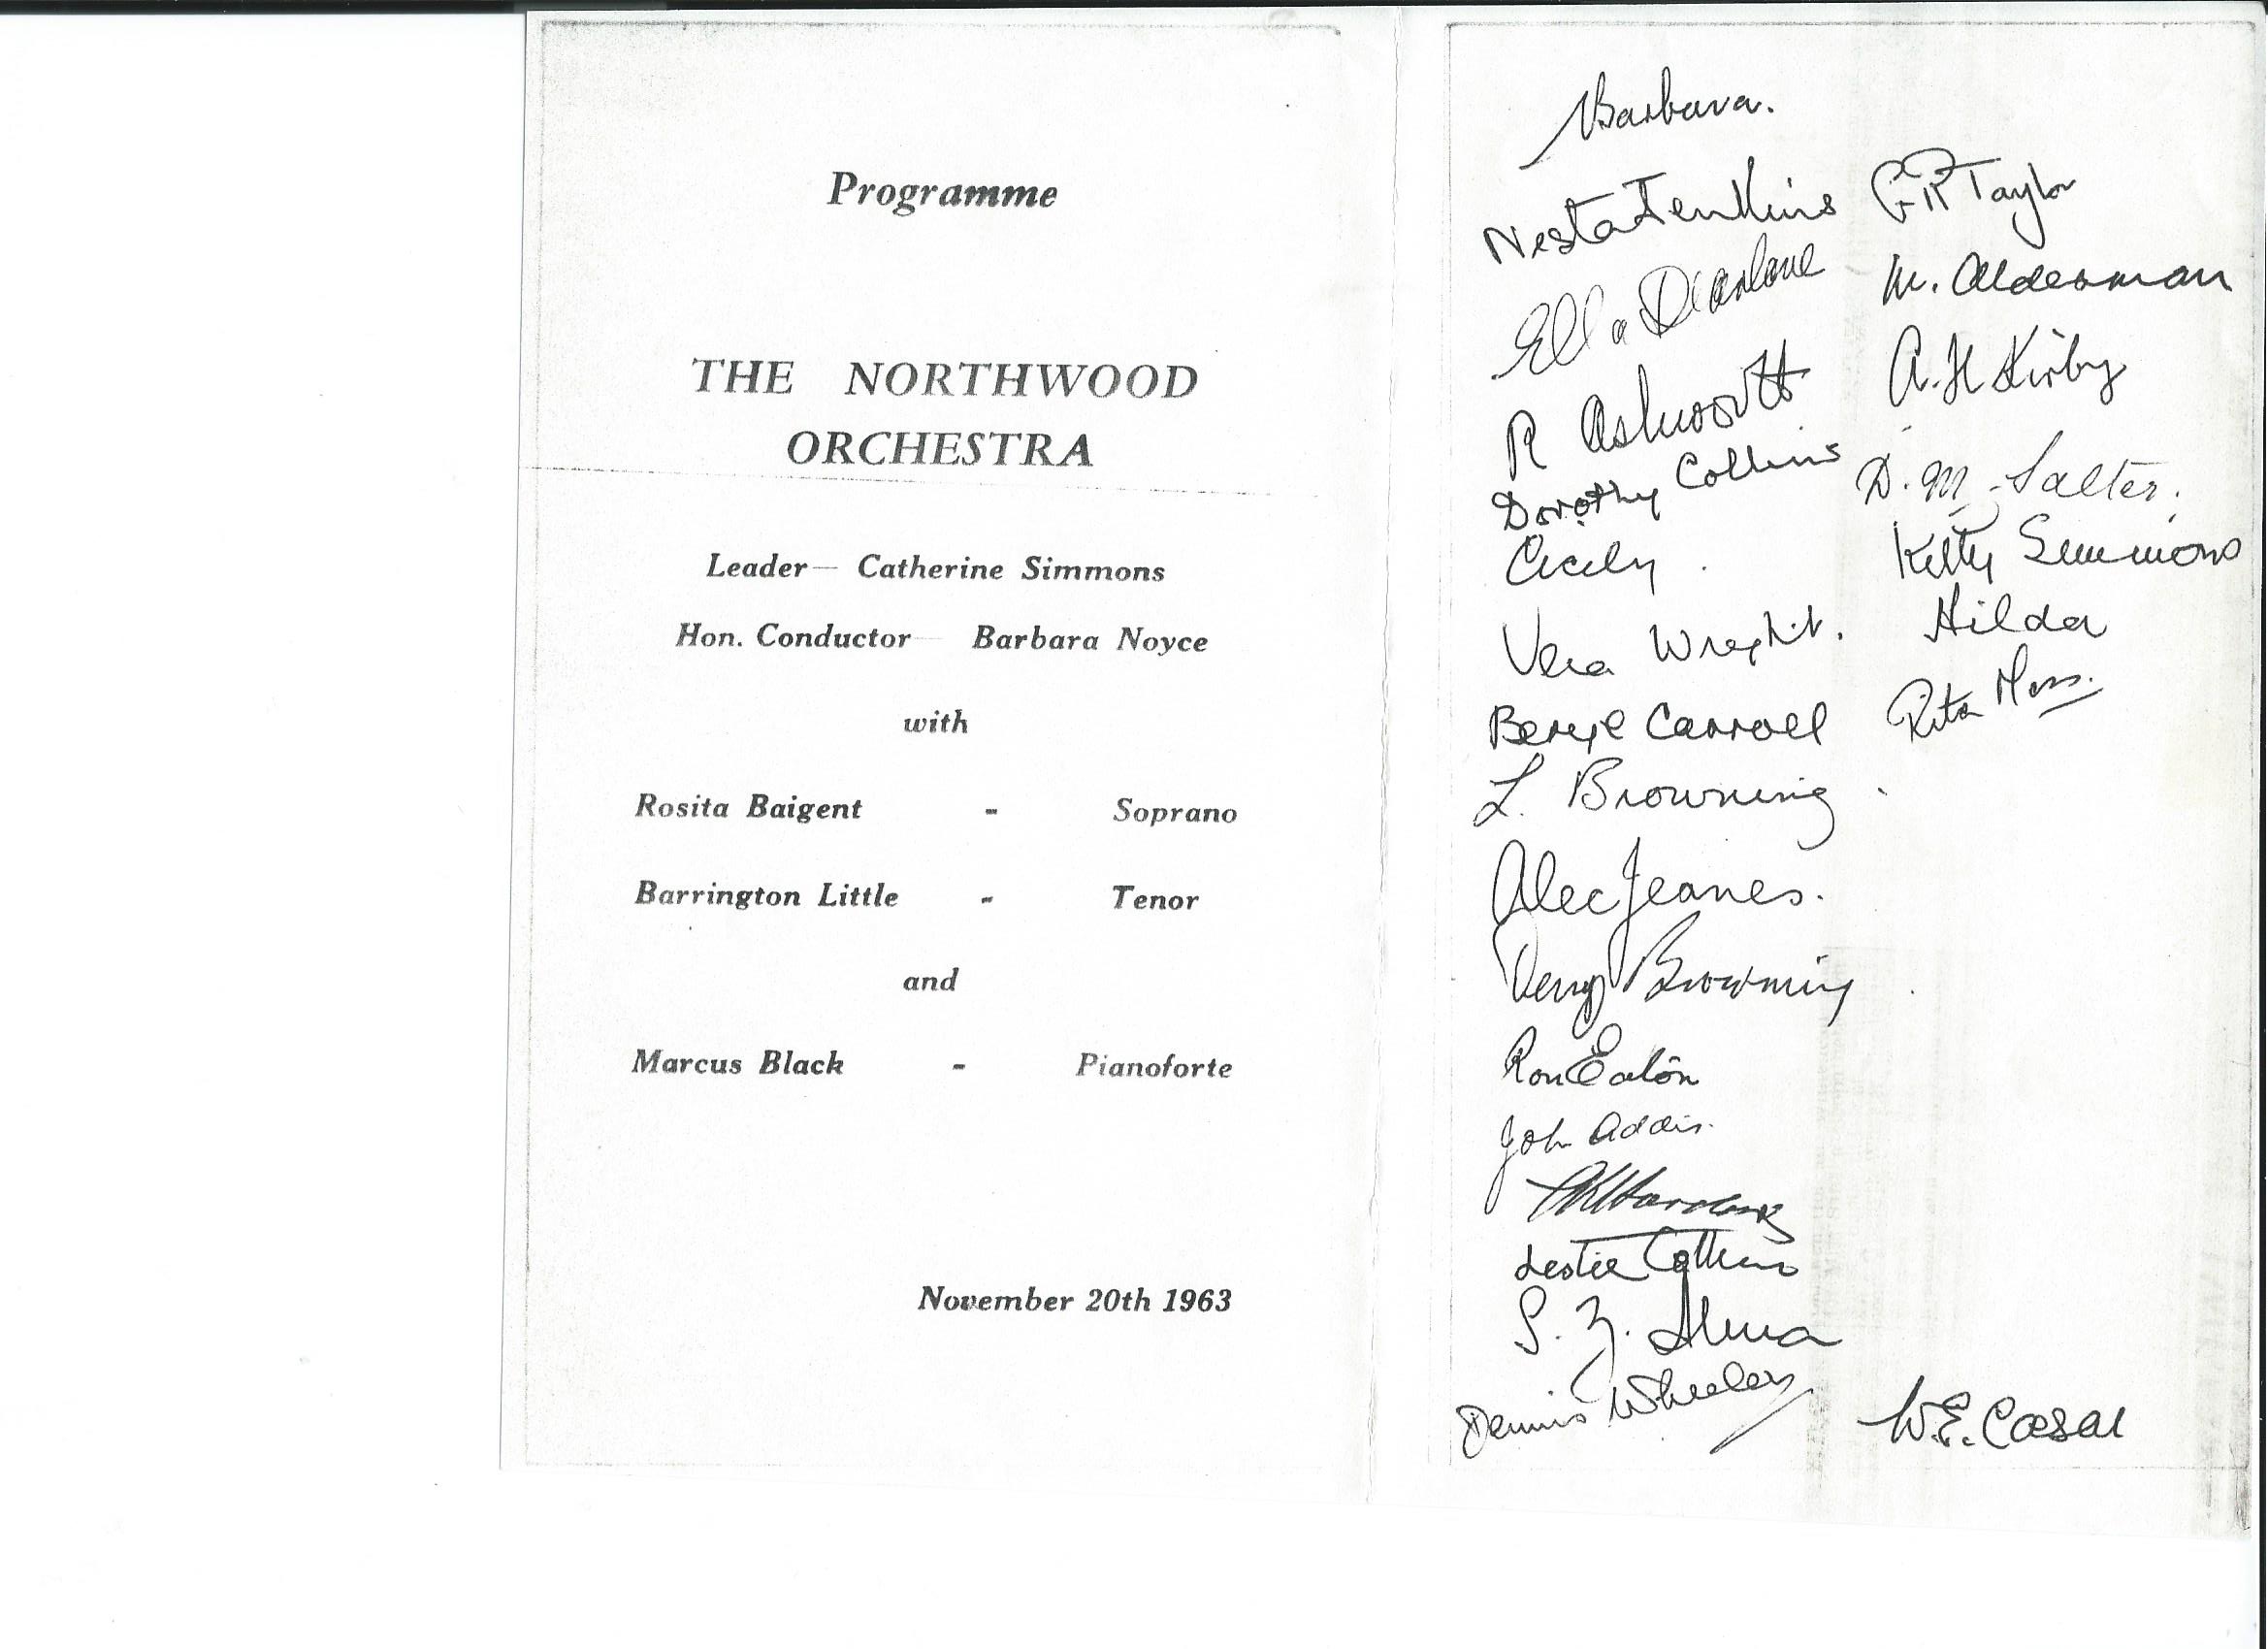 Programme
THE NORTHWOOD
ORCHESTRA
Leader— Catherine Simmons
Hon. Conductor— Barbara Noyce
with
Rosita Baigent - Soprano
Barrington Little - Tenor
and
Marcus Black - Pianoforte
November 20th 1963
Barbara.
Nesta Jenkins
Ella
R Ashworth
Dorothy Collins
Cecily.
Vera Wright.
Beryl Carroll
L. Browning
Alec Jeanes.
Browning
Ron Eaton
John Addis.
Leslie Collins
S. Z.
Dennis Wheeler
Taylor
M. Alderman
A. H Kirby
D. M. Salter.
Kitty Simmons
Hilda
Rita Moss.
W. E. Cæsar